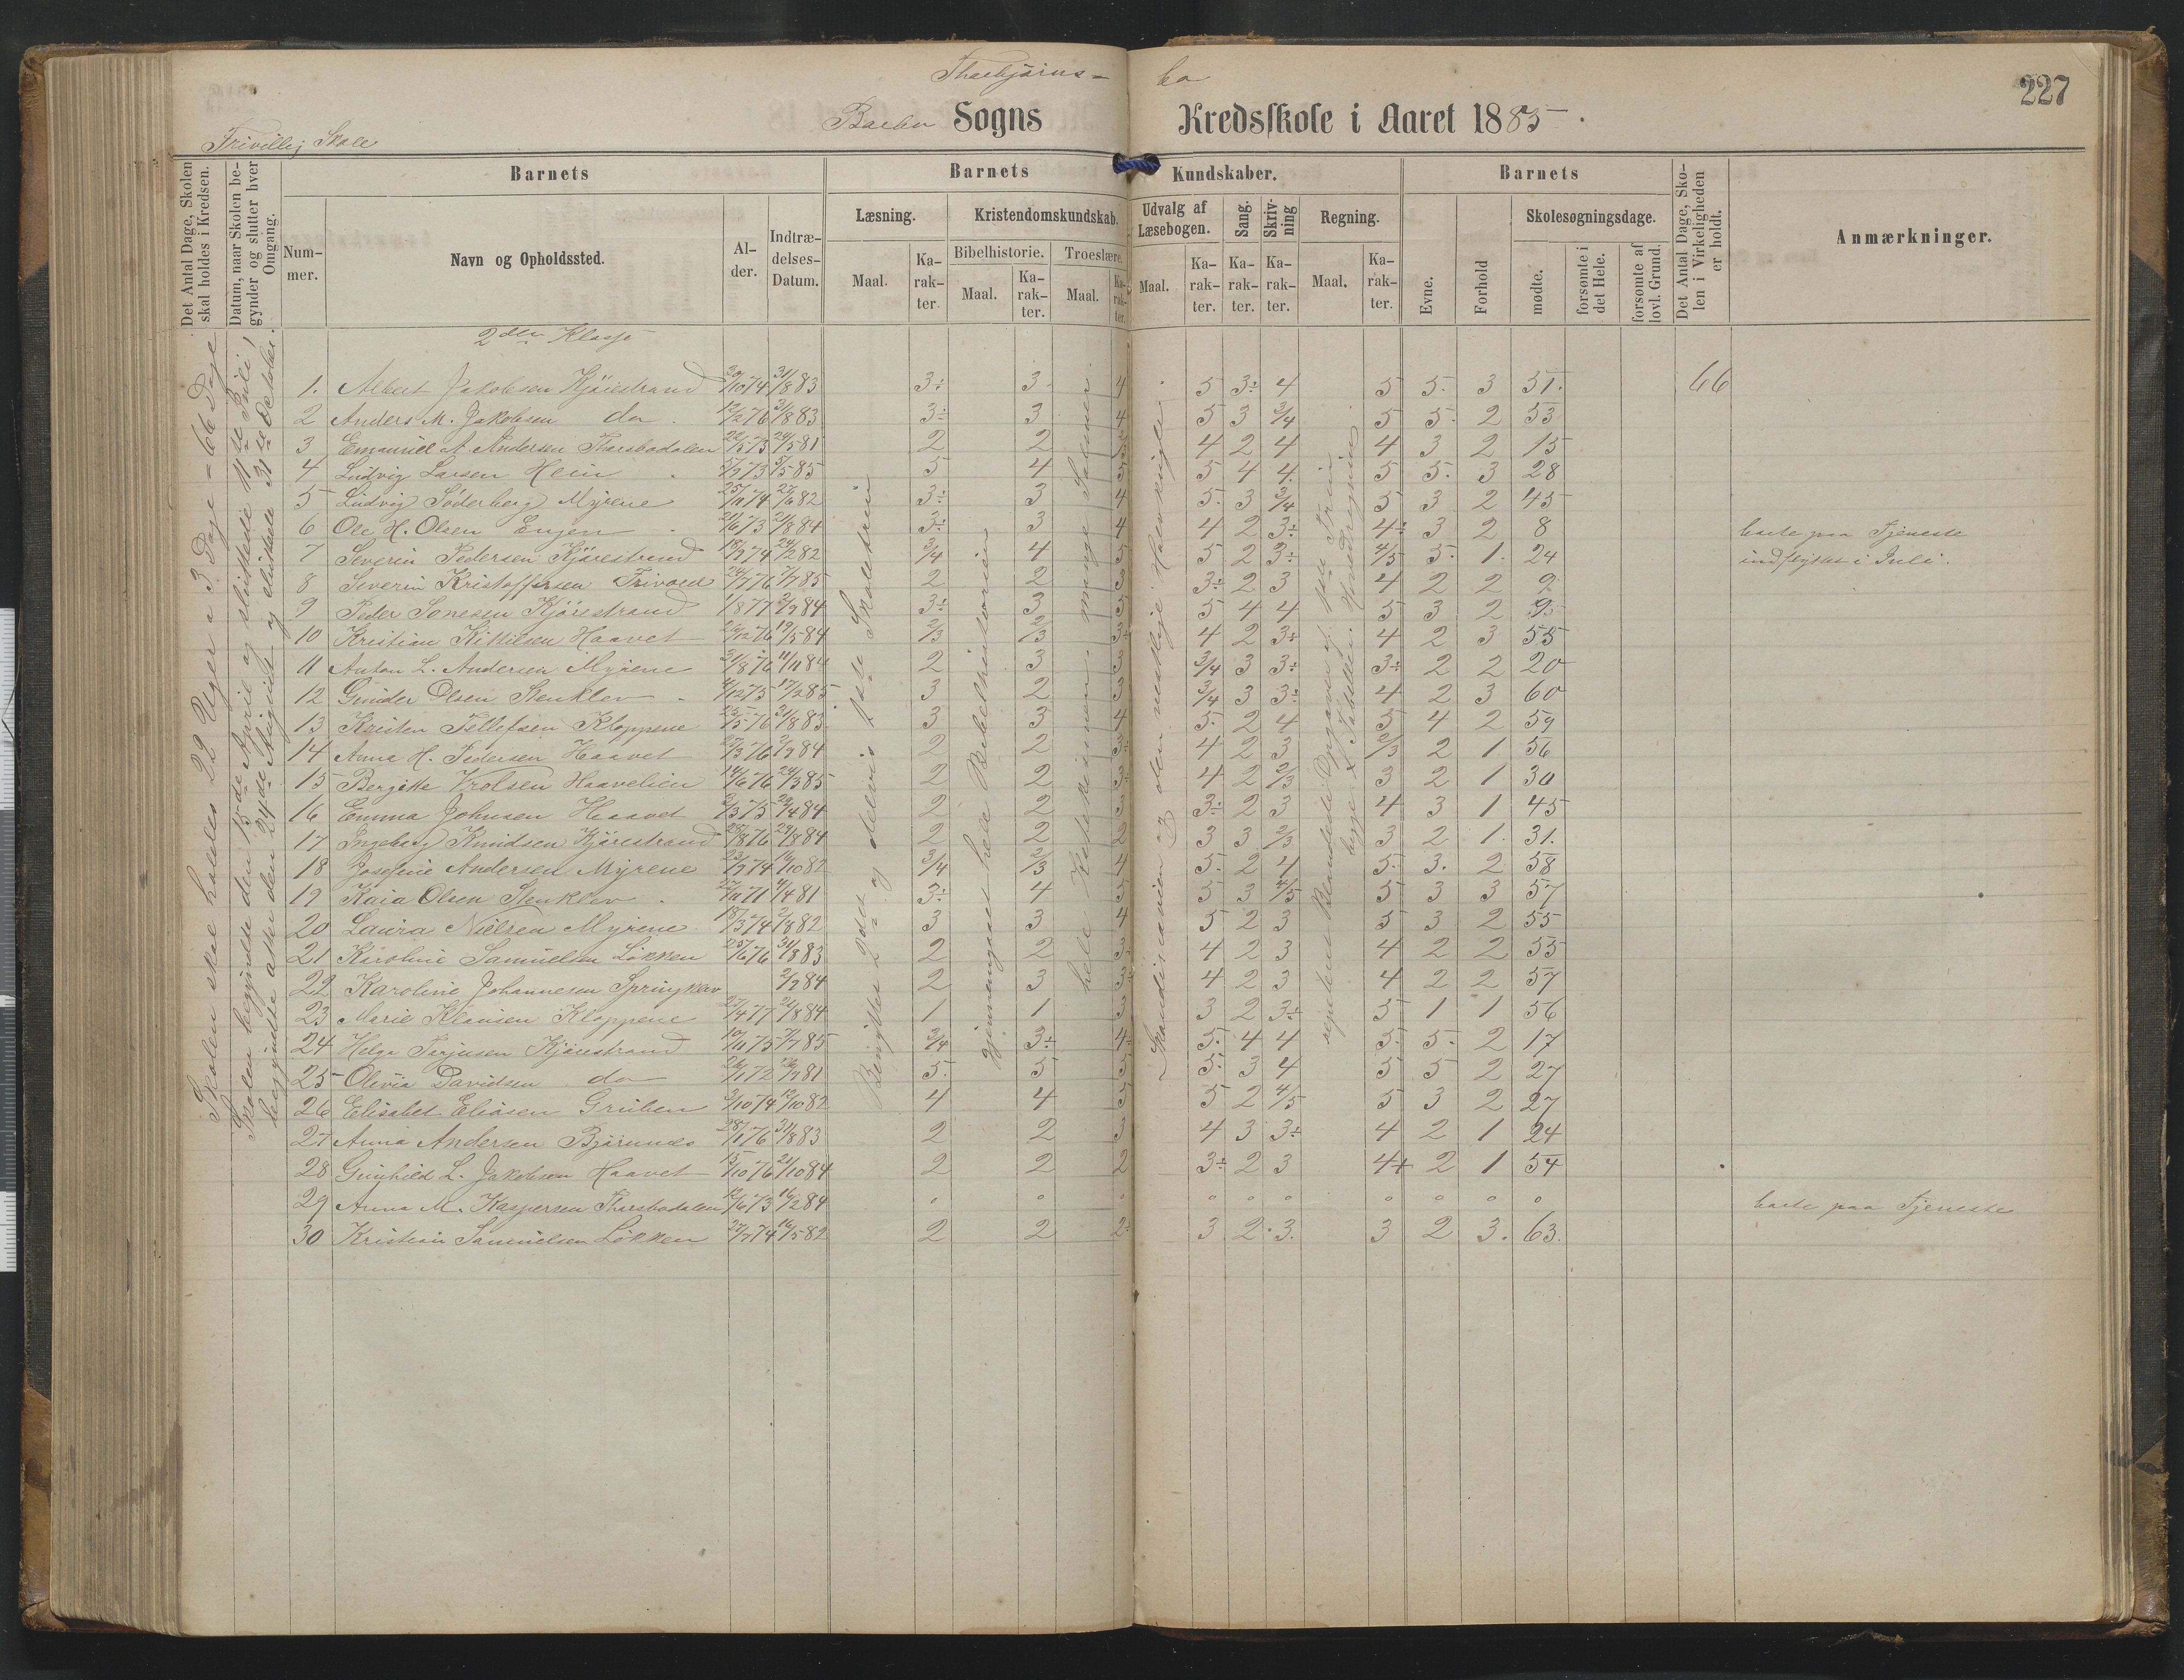 227
Barbu Sogns Kredsskole i Aaret 1885.
Frivillig Skole
Det Antal Dage, Skolen skal holdes i Kredsen.
Datum, naar Skolen begynder og slutter hver Omgang.
Barnets
Nummer.
Navn og Opholdssted.
Alder.
Indtrædelses-Datum.
Barnets Kundskaber.
Læsning.
Maal.
Karakter
Kristendomskundskab.
Bibelhistorie.
Maal.
Karakter.
Troeslære.
Maal.
Karakter.
Udvalg af Læsebogen.
Maal.
Karakter.
Sang.
Karakter.
Skrivning
Karakter.
Regning.
Maal.
Karakter.
Barnets
Evne.
Forhold
Skolesøgningsdage.
mødte.
forsømte i det Hele.
forsømte af lovl. Grund.
Det Antal Dage, Skolen i Virkeligheden er holdt.
Anmærkninger.
Skolen skal holdes 22 Uger a 3 Dage = 66 Dage
Skolen begyndte den 15de April og sluttede 11te Juli,
begyndte atter den 24de August og sluttede 31te Oktober.
2den Klasse
1. Albert Jakobsen Kjørestrand 30/10 74 31/8 83 3÷ 3 4 5 3÷ 4 5 5 3 51. 66
2 Anders M. Jakobsen do 12/2 76 31/8 83 3÷ 3 4 5 3 3/4 5 5 2 53
3 Emanuel A Andersen Thorsbudalen 2 2 4 2 4 4 3 2 15
4 Ludvig Larsen Heia 5 4 5 5 4 4 5 5 3 28
5 Ludvig Søderberg Myrene 3÷ 3 4 5 3 3/4 5 3 2 45
6 Ole H. Olsen Engen 21/6 73 21/8 84 3÷ 3 4 4 2 3÷ 4÷ 3 2 8 borte paa Tjeneste
7 Severin Pedersen Kjørestrand 3/4 4 5 5 2 3÷ 4/5 5 1 24 indflyttet i Juli.
8 Severin Kristoffersen Trivold 2 2 3 3÷ 2 3 4 2 2 9
9 Peder Sonesen Kjørestrand 1/8 77 2/9 84 3÷ 3 5 5 4 4 5 3 2 9
10 Kristian Kittilsen Haavet 19/5 84 2/3 2/3 3÷ 4 2 3÷ 4 2 3 55
11 Anton L. Andersen Myrene 31/8 76 11/11 84 2 3 3 3/4 3 3÷ 3÷ 2 2 20
12 Gunder Olsen Stenklev 4/12 75 17/2 85 3 2 3 3/4 3 3÷ 4 2 3 60
13 Kristen Tellefsen Kloppene 31/8 83 3 3 4 5 2 4 5 4 2 59
14 Anna H. Pedersen Haavet 27/3 76 2/9 84 2 2 3÷ 4 2 3 2/3 2 1 56
15 Bergitte Vrolsen Haavelien 14/6 76 24/3 85 2 2 3÷ 4 2 2/3 3 2 1 30
16 Emma Johnsen Haavet 2 2 3 3÷ 2 3 4 3 1 45
17 Ingeborg Knudsen Kjørestrand 2 2 2 3 3 2/3 3 2 1 31.
18 Josefine Andersen Myrene 3/4 2/3 4 5 2 4 5 3 2 58
19 Kaia Olsen Stenklev 3÷ 4 5 5 3 4/5 5 3 3 57
20 Laura Nielsen Myrene 3 3 4 5 2 3 5 3 2 55
21 Karoline Samuelsen Løkken 25/6 76 31/8 83 2 2 3÷ 4 2 3 4 2 2 55
22 Karoline Johannesen Springklev 2/9 84 2 3 3÷ 4 2 3 4 2 2 57
23 Marie Klausen Kloppene 27/4 77 21/8 84 1 1 3 3 2 3÷ 5 1 1 56
24 Helga Terjusen Kjørestrand 10/11 75 7/7 85 3/4 3÷ 4÷ 5 4 4 5 5 2 17
25 Olivia Davidsen do 5 5 5 5 3 4 5 5 2 27
26 Elisabet Eliasen Gruben 9/10 74 12/10 82 4 4 5 5 2 4/5 5 3 2 27
27 Anna Andersen Bjørnnes 28/1 76 31/8 83 2 2 3 4 3 3÷ 4 2 1 24
28 Gunhild L. Jakobsen Haavet 15/10 76 21/10 84 2 2 2 3÷ 2 3 4+ 2 1 54
29 Anna M. Kaspersen Thorsbudalen 12/6 73 16/2 84 borte paa Tjeneste
30 Kristian Samuelsen Løkken 27/7 74 16/5 82 2 2 2÷ 3 2 3. 3 2 3. 63.
Benyttet 2det og delvis 1ste Skoletrin
gjennemgaaet hele Bibelhistorien
hele Katekismen. mange Salmer.
Skandinavien og den vestlige Halvkugle.
repeteret Blandede Opgaver af 1ste Trin
begge Tabeller. Hovedregning.